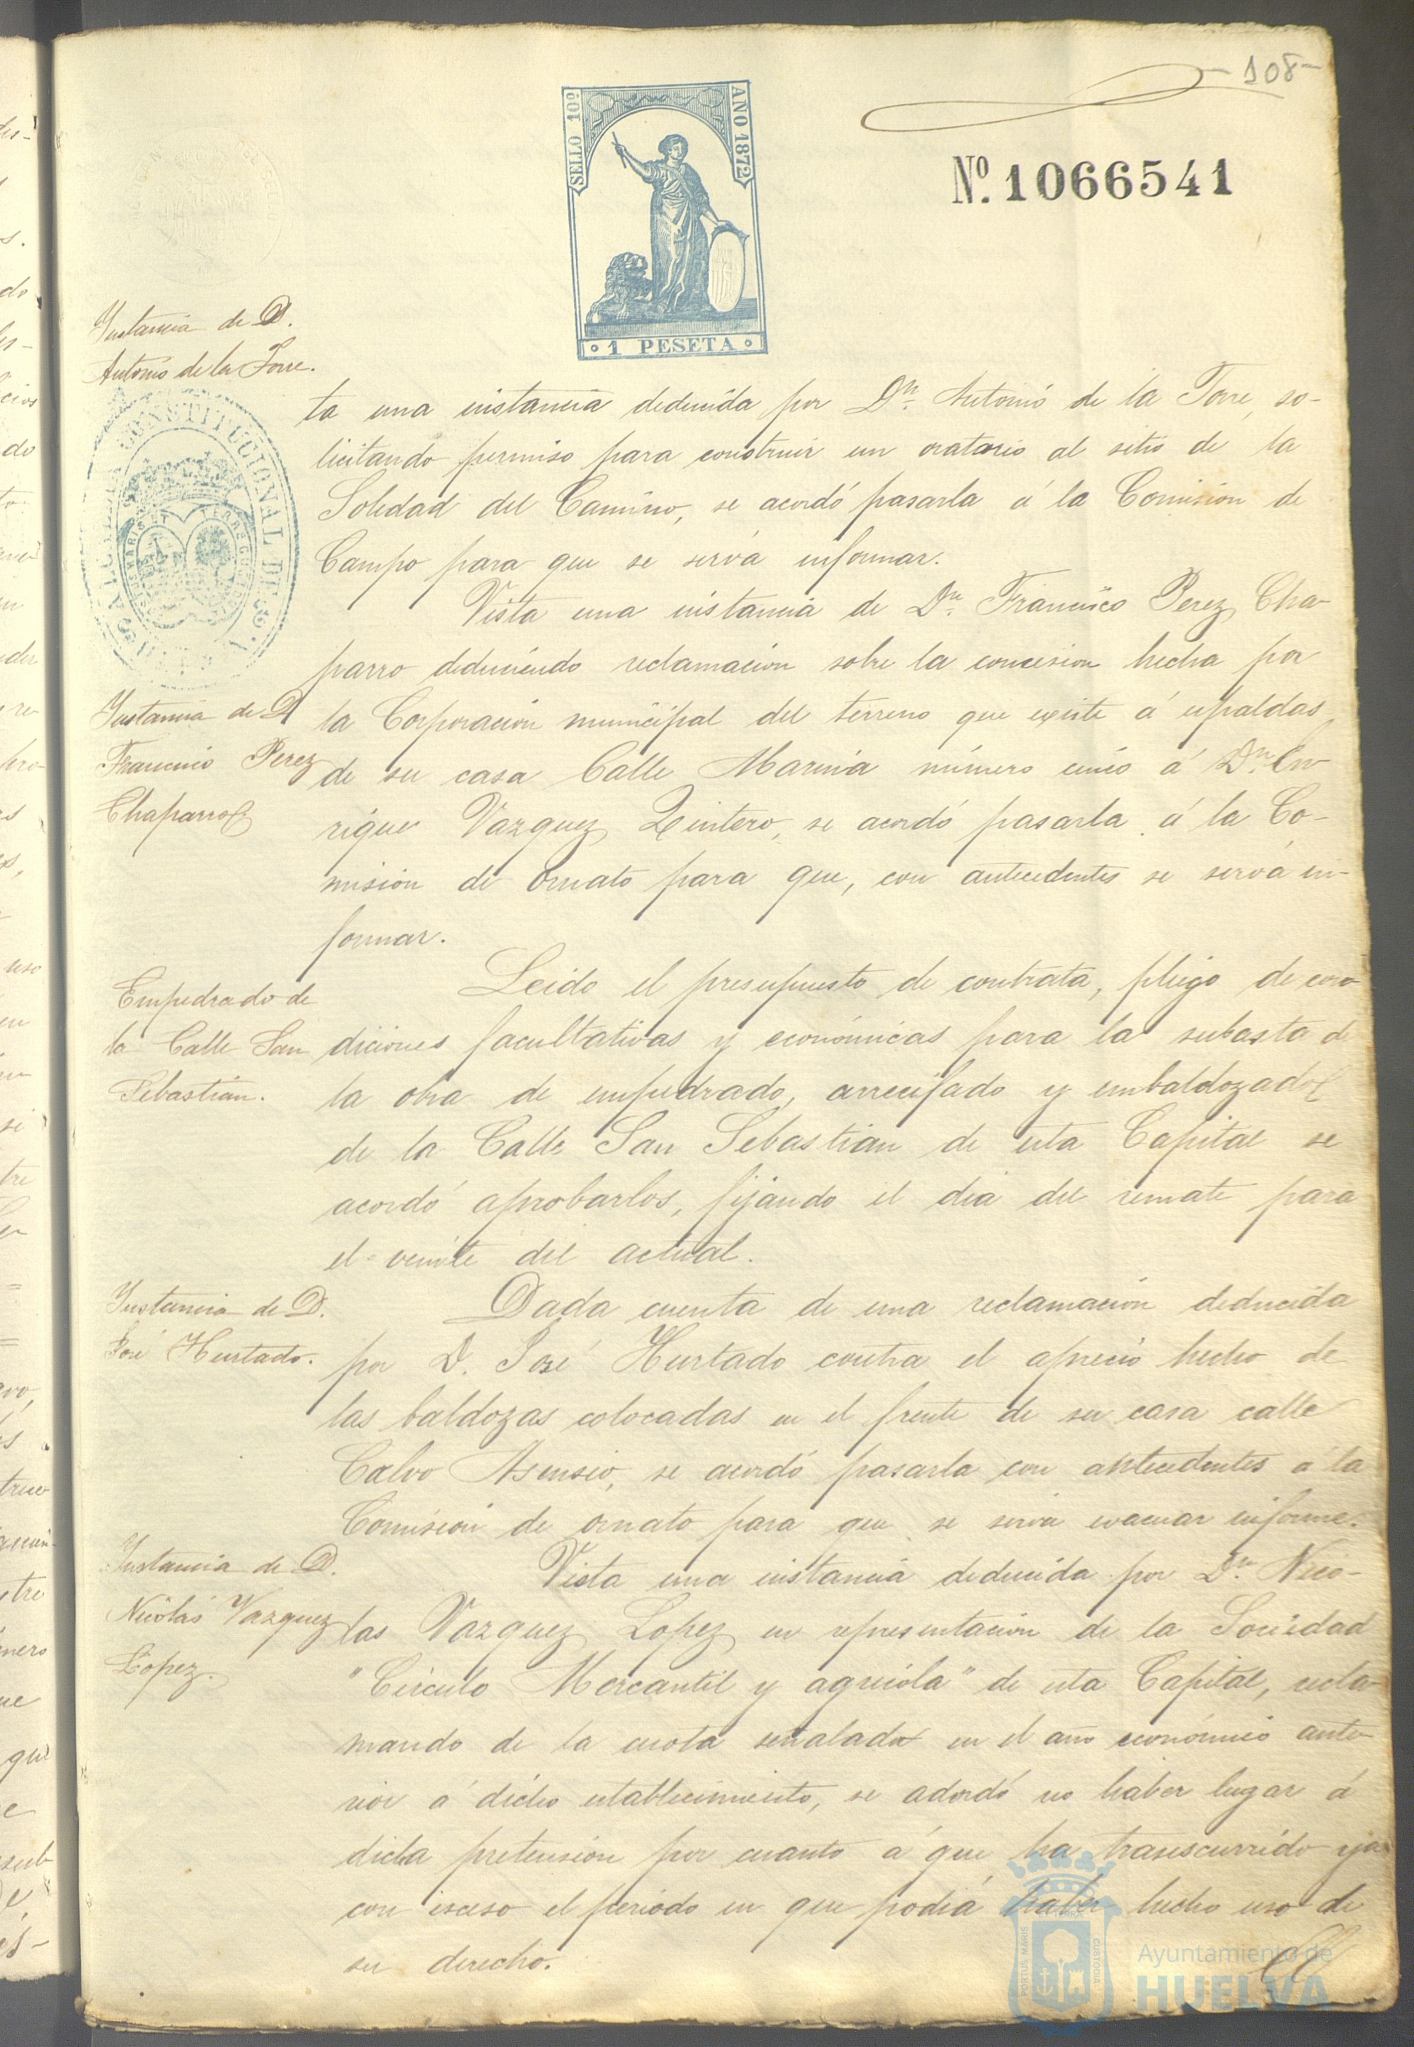 - 108 -
SELLO 10º
AÑO 1872
1 PESETA
Nº. 1066541
Instancia de D.
Antonio de la Torre.
ta una instancia deducida por Dn. Antonio de la Torre, so-
licitando permiso para construir un oratorio al sitio de la
Soledad del Camino, se acordó pasarla á la Comision de
Campo para que se sirva informar.
Instancia de D
Francisco Perez
Chaparro
Vista una instancia de Dn. Francisco Perez Cha-
parro deduciendo reclamacion sobre la concesion hecha por
la Corporacion municipal del terreno que existe á espaldas
de su casa Calle Marina número cinco á Dn. En-
rique Vazquez Quintero, se acordó pasarla á la Co-
mision de Ornato para que, con antecedentes se sirva in-
formar.
Empedrado de
la Calle San
Sebastian.
Leido el presupuesto de contrata, pliego de con-
diciones facultativas y económicas para la subasta de
la obra de empedrado, arrecifado y embaldozado
de la Calle San Sebastian de esta Capital se
acordó aprobarlos, fijando el dia del remate para
el veinte del actual.
Instancia de D.
José Hurtado.
Dada cuenta de una reclamacion deducida
por D. José Hurtado contra el aprecio hecho de
las baldozas colocadas en el frente de su casa calle
Calvo Asensio, se acordó pasarla con antecedentes á la
Comision de ornato para que se sirva evacuar informe.
Instancia de D.
Nicolás Vazquez
Lopez.
Vista una instancia deducida por Dn. Nico-
las Vazquez Lopez en representacion de la Sociedad
"Círculo Mercantil y agricola" de esta Capital, recla-
mando de la cuota señalada en el año económico ante-
rior á dicho establecimiento, se adordó no haber lugar á
dicha pretension por cuanto á que ha transcurrido ya
con esceso el periodo en que podia haber hecho uso de
su derecho.
PORTUS MARIS
CUSTODIA
Ayuntamiento de
HUELVA